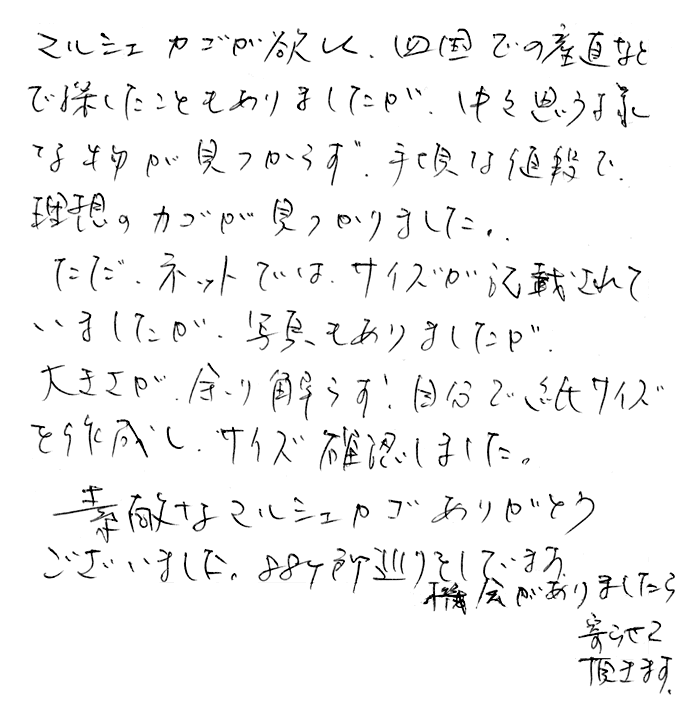 マルシェカゴが欲しく、四国での産直など
で探したこともありましたが、中々思う様
な物が見つからず、手頃な値段で、
理想のカゴが見つかりました。
ただ、ネットでは、サイズが記載されて
いましたが、写真もありましたが、
大きさが、余り解らず、自分で紙サイズ
を作成し、サイズ確認しました。
素敵なマルシェカゴありがとう
ございました。88ヶ所巡りをしています
機会がありましたら
寄らせて
頂きます。